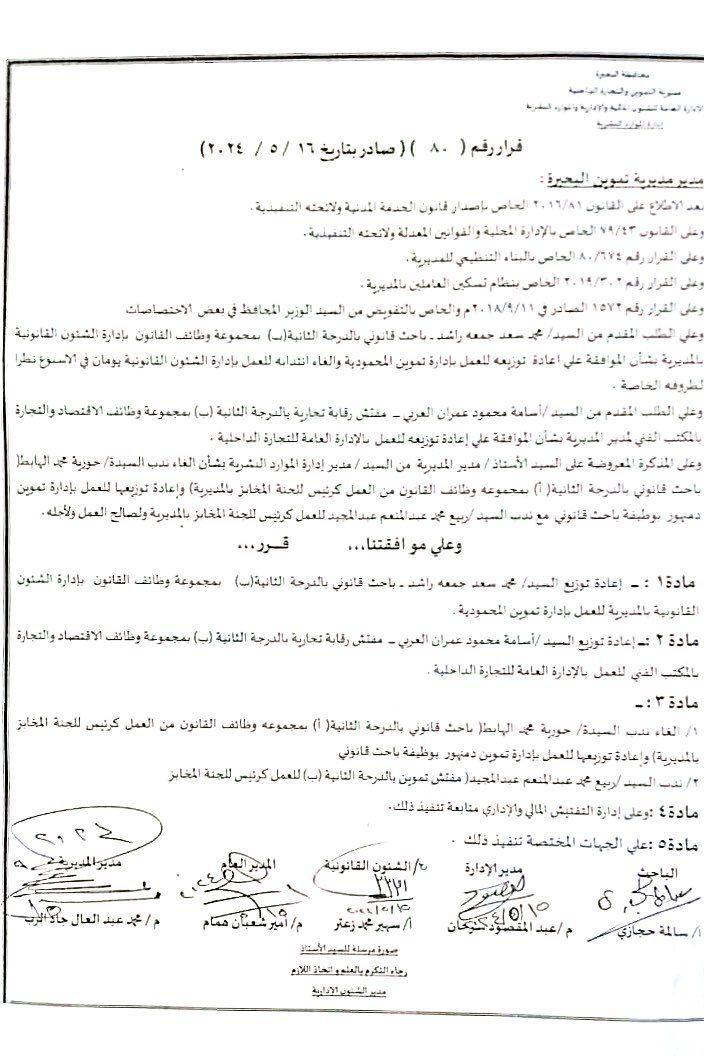 محافظة البحيرة
مديرية التموين والتجارة الداخلية
الادارة العامة للشئون المالية والإدارية والموارد البشرية
إدارة الموارد البشرية
قرار رقم ( ٨٠ ) ( صادر بتاريخ ١٦ / ٥ / ٢٠٢٤)
مدير مديرية تموين البحيرة :
بعد الاطلاع على القانون ٢٠١٦/٨١ الخاص بإصدار قانون الخدمة المدنية ولائحته التنفيذية .
وعلى القانون ٧٩/٤٣ الخاص بالإدارة المحلية والقوانين المعدلة ولائحته التنفيذية .
وعلى القرار رقم ٨٠/٦٧٤ الخاص بالبناء التنظيمي للمديرية .
وعلى القرار رقم ٢٠١٩/٣٠٢ الخاص بنظام تسكين العاملين بالمديرية .
وعلى القرار رقم ١٥٧٢ الصادر في ٢٠١٨/٩/١١م والخاص بالتفويض من السيد الوزير المحافظ في بعض الاختصاصات
وعلي الطلب المقدم من السيد/ محمد سعد جمعه راشد ـ باحث قانوني بالدرجة الثانية(ب) بمجموعة وظائف القانون بإدارة الشئون القانونية
بالمديرية بشأن الموافقة علي اعادة توزيعه للعمل بإدارة تموين المحمودية والغاء انتدابه للعمل بإدارة الشئون القانونية يومان في الاسبوع نظرا
لظروفه الخاصة .
وعلي الطلب المقدم من السيد /أسامة محمود عمران العربي ــ مفتش رقابة تجارية بالدرجة الثانية (ب) بمجموعة وظائف الاقتصاد والتجارة
بالمكتب الفني لمدير المديرية بشأن الموافقة علي إعادة توزيعه للعمل بالإدارة العامة للتجارة الداخلية .
وعلى المذكرة المعروضة على السيد الأستاذ / مدير المديرية من السيد / مدير إدارة الموارد البشرية بشأن الغاء ندب السيدة/ حورية محمد الهابط(
باحث قانوني بالدرجة الثانية( أ) بمجموعه وظائف القانون من العمل كرئيس للجنة المخابز بالمديرية) وإعادة توزيعها للعمل بإدارة تموين
دمنهور بوظيفة باحث قانوني مع ندب السيد /ربيع محمد عبدالمنعم عبدالمجيد للعمل كرئيس للجنة المخابز بالمديرية ولصالح العمل ولأجله.
وعلي موافقتنا... قــرر...
مادة ١ : ــ إعادة توزيع السيد/ محمد سعد جمعه راشد ـ باحث قانوني بالدرجة الثانية(ب) بمجموعة وظائف القانون بإدارة الشئون
القانونية بالمديرية للعمل بإدارة تموين المحمودية .
مادة ٢ :ــ إعادة توزيع السيد /أسامة محمود عمران العربي ــ مفتش رقابة تجارية بالدرجة الثانية (ب) بمجموعة وظائف الاقتصاد والتجارة
بالمكتب الفني للعمل بالإدارة العامة للتجارة الداخلية .
مادة ٣ : ــ
١/ الغاء ندب السيدة/ حورية محمد الهابط( باحث قانوني بالدرجة الثانية( أ) بمجموعه وظائف القانون من العمل كرئيس للجنة المخابز
بالمديرية) وإعادة توزيعها للعمل بإدارة تموين دمنهور بوظيفة باحث قانوني
٢/ ندب السيد /ربيع محمد عبدالمنعم عبدالمجيد( مفتش تموين بالدرجة الثانية (ب) للعمل كرئيس للجنة المخابز
مادة ٤ :وعلى إدارة التفتيش المالي والإداري متابعة تنفيذ ذلك.
مادة ٥ :علي الجهات المختصة تنفيذ ذلك .
الباحث مدير الإدارة ع/ الشئون القانونية المدير العام مدير المديرية
أ/ سالمة حجازي م/عبد المقصود سريحان أ/ سهير محمد زعتر م/ أمير شعبان همام م/ محمد عبد العال جاد الرب
صورة مرسلة للسيد الأستاذ
رجاء التكرم بالعلم و اتخاذ اللازم
مدير الشئون الإدارية